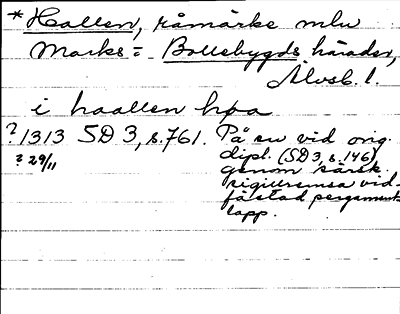 *Hallen, råmärke mln
Marks= Bollebygds härader,
Älvsb. l.
i haallen hpa
?1313 SD 3, s. 761. På en vid orig.
? 29/11 dipl. (SD 3, s. 146)
genom särsk.
sigillremsa vid-
fästad pergaments-
lapp.